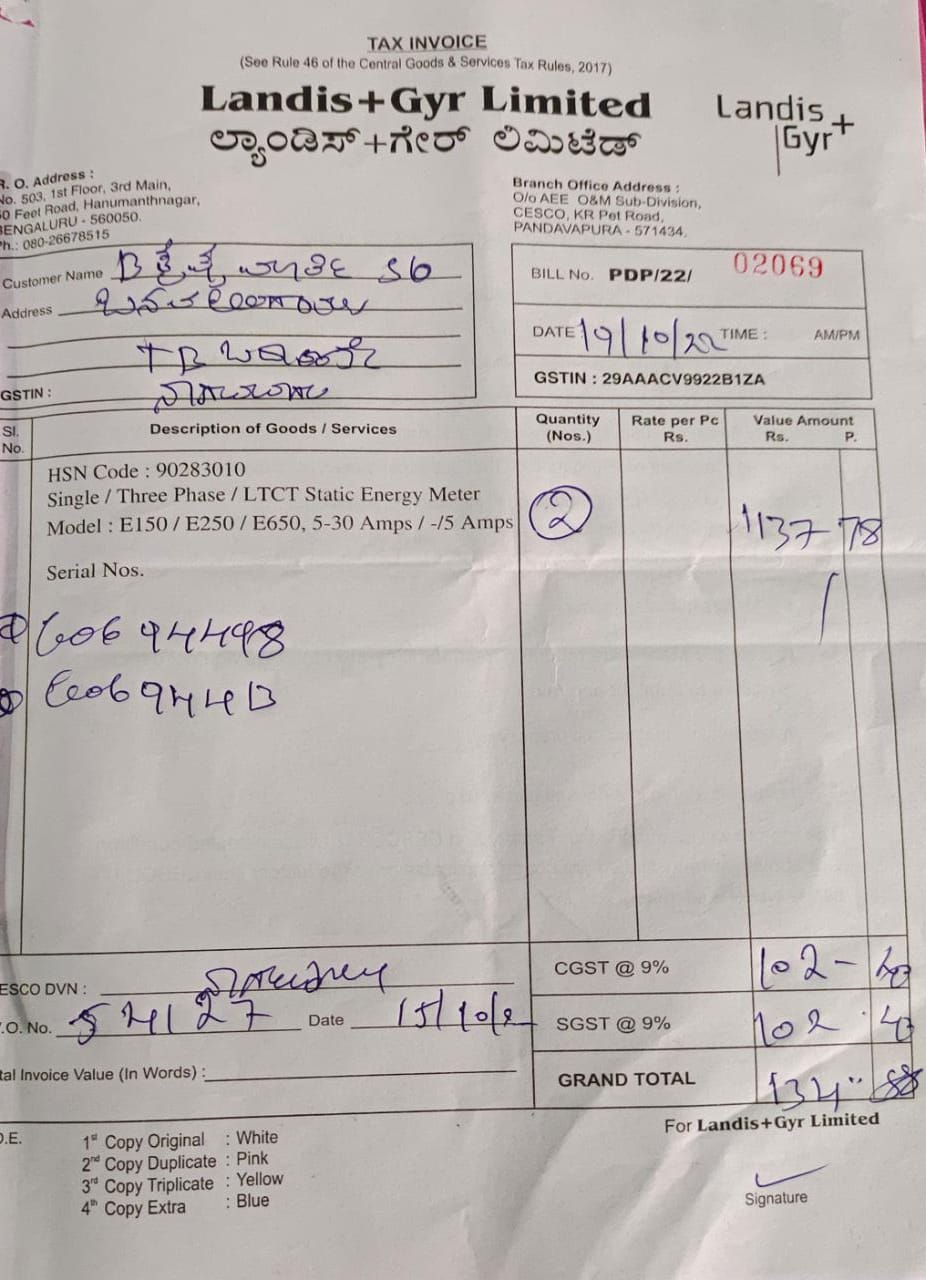 TAX INVOICE
(See Rule 46 of the Central Goods & Services Tax Rules, 2017)
Landis+Gyr Limited
ಲ್ಯಾಂಡಿಸ್+ಗೇರ್ ಲಿಮಿಟೆಡ್
Landis+
Gyr
R. O. Address :
No. 503, 1st Floor, 3rd Main,
Feet Road, Hanumanthnagar,
BENGALURU - 560050.
Ph.: 080-26678515
Branch Office Address :
O/o AEE O&M Sub-Division,
CESCO, KR Pet Road,
PANDAVAPURA - 571434.
Customer Name
Address
GSTIN :
BILL No. PDP/22/ 02069
DATE 19/10/22 TIME : AM/PM
GSTIN : 29AAACV9922B1ZA
Sl. No. Description of Goods / Services Quantity (Nos.) Rate per Pc Rs. Value Amount Rs. P.
HSN Code : 90283010
Single / Three Phase / LTCT Static Energy Meter
Model : E150 / E250 / E650, 5-30 Amps / -/5 Amps 2 1137 78
Serial Nos.
CGST @ 9% 102 - 40
ESCO DVN :
SGST @ 9% 102 . 40
.O. No. Date 15/10/2
tal Invoice Value (In Words) :
GRAND TOTAL
For Landis+Gyr Limited
1st Copy Original : White
2nd Copy Duplicate : Pink
3rd Copy Triplicate : Yellow
4th Copy Extra : Blue
Signature